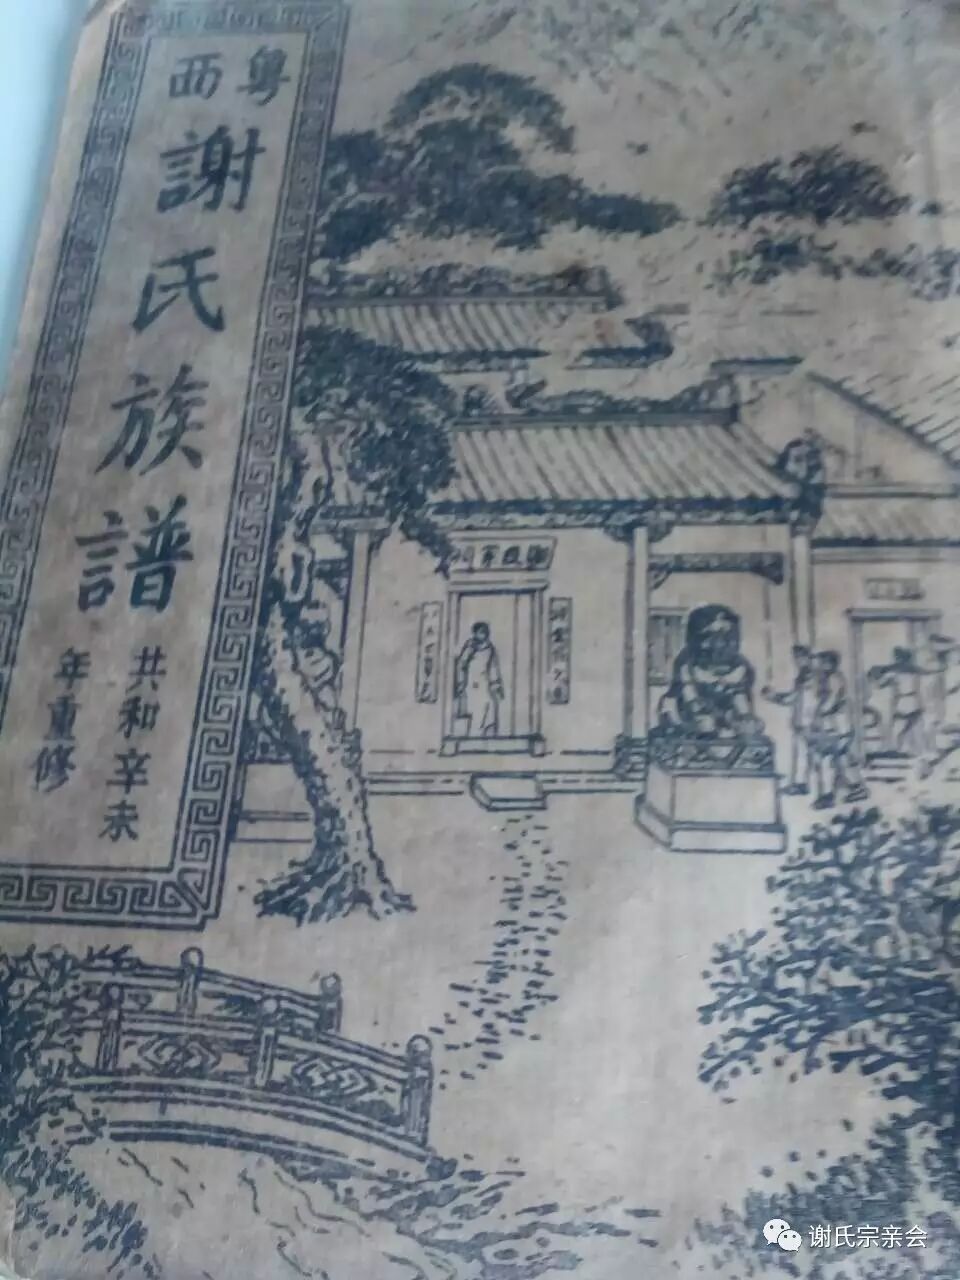 粤西
謝氏族譜
共和辛未
年重修
谢氏宗亲会